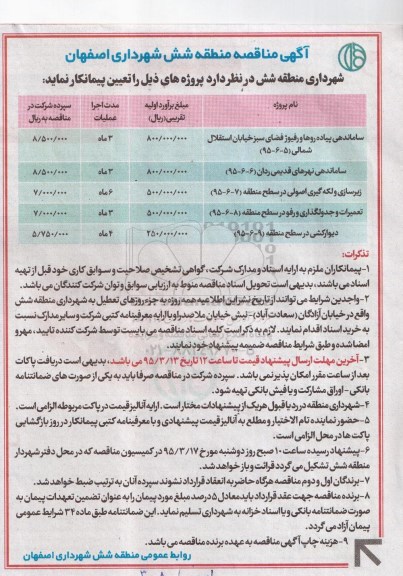 آگهی مناقصه منطقه شش شهرداری اصفهان
شهرداری منطقه شش در نظر دارد پروژه های ذیل را تعیین پیمانکار نماید:
نام پروژه	مبلغ برآورد اولیه تقریبی(ریال)	مدت اجرا عملیات	سپرده شرکت در مناقصه به ریال
ساماندهی پیاده روها و رفیوژ فضای سبز خیابان استقلال شمالی (۵-۶-۹۵)	۸۰۰/۰۰۰/۰۰۰	۳ ماه	۸/۵۰۰/۰۰۰
ساماندهی نهرهای قدیمی ردان (۶-۶-۹۵)	۸۰۰/۰۰۰/۰۰۰	۳ ماه	۸/۵۰۰/۰۰۰
زیرسازی و لکه گیری اصولی در سطح منطقه (۷-۶-۹۵)	۵۰۰/۰۰۰/۰۰۰	۶ ماه	۷/۰۰۰/۰۰۰
تعمیرات و جدولگذاری و رفو در سطح منطقه (۸-۶-۹۵)	۵۰۰/۰۰۰/۰۰۰	۳ ماه	۷/۰۰۰/۰۰۰
دیوارکشی در سطح منطقه (۹-۶-۹۵)	۲۵۰/۰۰۰/۰۰۰	۴ ماه	۵/۷۵۰/۰۰۰
تذکرات:
۱-پیمانکاران ملزم به ارایه اسناد و مدارک شرکت ، گواهی تشخیص صلاحیت و سوابق کاری خود قبل از تهیه
اسناد می باشند، بدیهی است تحویل اسناد مناقصه منوط به ارزیابی سوابق و توان شرکت کنندگان می باشد.
۲-واجدین شرایط می توانند از تاریخ نشر این اطلاعیه همه روزه به جزء روزهای تعطیل به شهرداری منطقه شش
واقع در خیابان آزادگان (سعادت آباد)- نبش خیابان ملاصدرا و با ارایه معرفینامه کتبی شرکت و سایر مدارک نسبت
به خرید اسناد اقدام نمایند. لازم به ذکر است کلیه اسناد مناقصه می بایست توسط شرکت کننده تایید، مهر و
امضا شده و طبق شرایط مناقصه ضمیمه پیشنهاد خود نمایند.
۳-آخرین مهلت ارسال پیشنهاد قیمت تا ساعت ۱۲ تاریخ ۹۵/۳/۱۳ می باشد، بدیهی است دریافت پاکات
بعد از ساعت مقرر امکان پذیر نمی باشد. سپرده شرکت در مناقصه صرفا باید به یکی از صورت های ضمانتنامه
بانکی - اوراق مشارکت و یا فیش بانکی تهیه شود.
۴-شهرداری منطقه در رد یا قبول هر یک از پیشنهادات مختار است. ارایه آنالیز قیمت در پاکت مربوطه الزامی است.
۵-حضور نماینده تام الاختیار و مطلع به آنالیز قیمت پیشنهادی و با معرفینامه کتبی پیمانکار در روز بازگشایی
پاکت ها در محل الزامی است.
۶-پیشنهاد رسیده ساعت ۱۰ صبح روز دوشنبه مورخ ۹۵/۳/۱۷ در کمیسیون مناقصه که در محل دفتر شهردار
منطقه شش تشکیل می گردد قرائت و باز خواهد شد.
۷-برندگان اول و دوم مناقصه هرگاه حاضر به انعقاد قرارداد نشوند سپرده آنان به ترتیب ضبط خواهد شد.
۸-برنده مناقصه جهت عقد قرارداد باید معادل ۵ درصد مبلغ مورد پیمان را به عنوان تضمین تعهدات پیمان به
صورت ضمانتنامه بانکی و یا اسناد خزانه به شهرداری تسلیم نماید. این ضمانتنامه طبق ماده ۳۴ شرایط عمومی
پیمان آزاد می گردد.
۹-هزینه چاپ آگهی مناقصه به عهده برنده مناقصه می باشد.
روابط عمومی منطقه شش شهرداری اصفهان